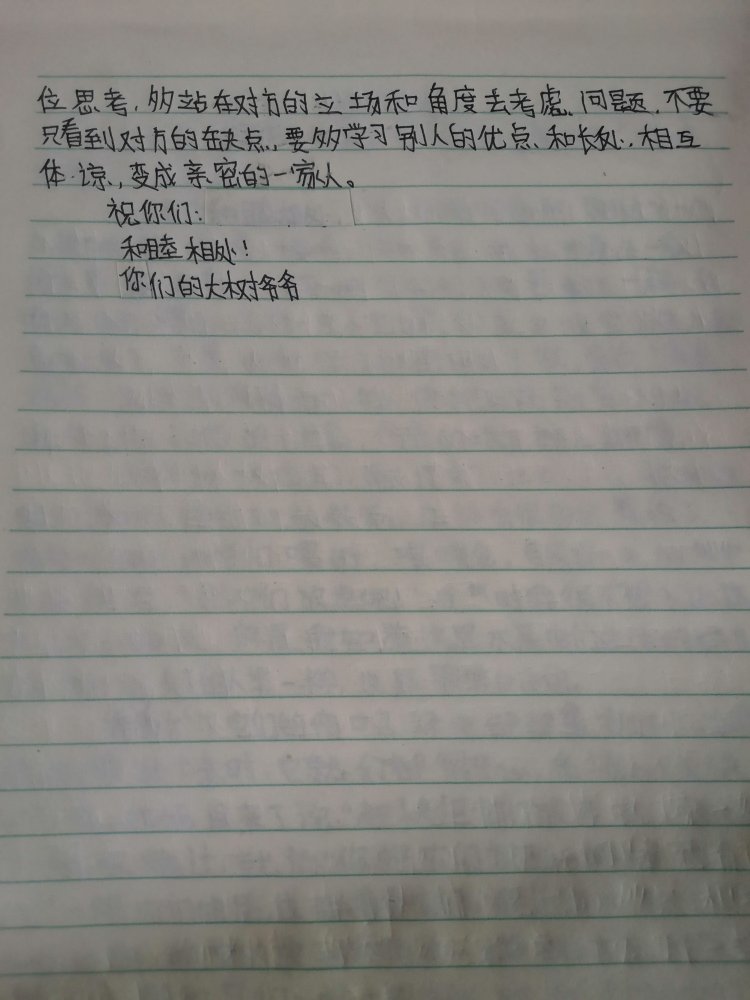 位思考,多站在对方的立场和角度去考虑问题,不要
只看到对方的缺点,要多学习别人的优点和长处,相互
体谅,变成亲密的一家人。
祝你们:
和睦相处!
你们的大树爷爷